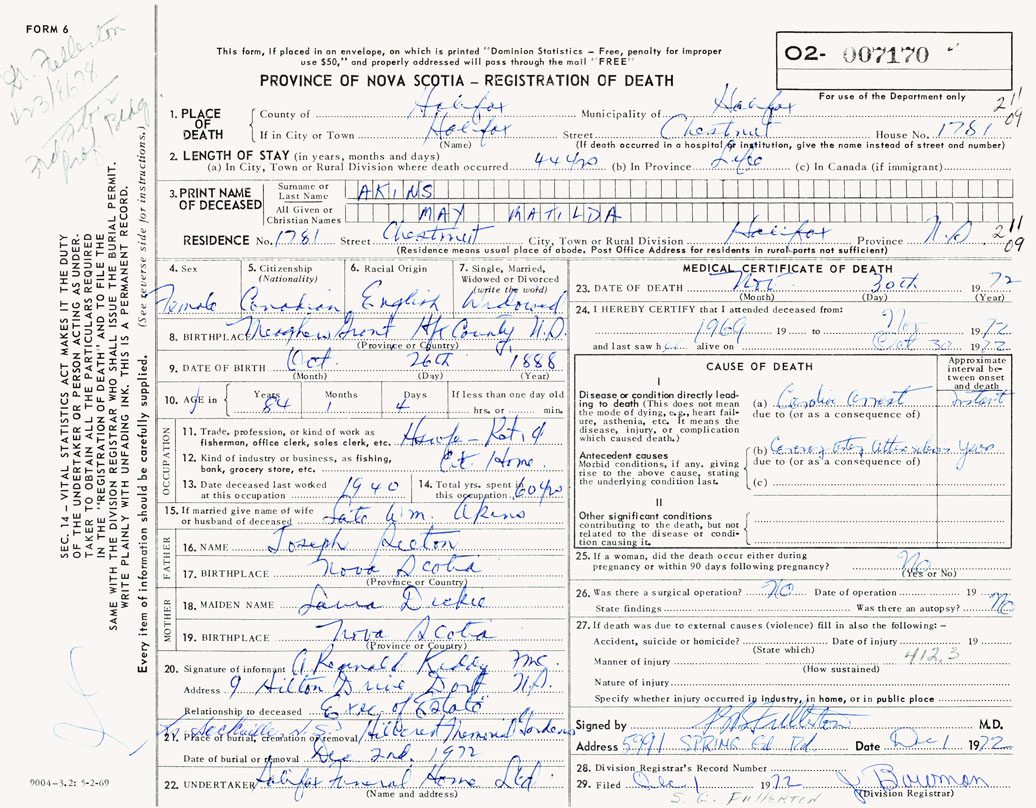 FORM 6
Dr. Fullerton
423/8678
This form, if placed in an envelope, on which is printed "Dominion Statistics – Free, penalty for improper
use $50," and properly addressed will pass through the mail "FREE"
O2- 007170
PROVINCE OF NOVA SCOTIA – REGISTRATION OF DEATH
For use of the Department only
2 11
09
1. PLACE OF DEATH
County of Halifax Municipality of Halifax
If in City or Town Halifax Street Chestnut House No. 1781
(Name) (If death occurred in a hospital or institution, give the name instead of street and number)
2. LENGTH OF STAY (in years, months and days)
(a) In City, Town or Rural Division where death occurred 44 yrs (b) In Province Life (c) In Canada (if immigrant)
3. PRINT NAME OF DECEASED
Surname or Last Name AKINS
All Given or Christian Names MAY MATILDA
RESIDENCE No. 1781 Street Chestnut City, Town or Rural Division Halifax Province N.S 2 11 09
(Residence means usual place of abode. Post Office Address for residents in rural parts not sufficient)
4. Sex Female
5. Citizenship (Nationality) Canadian
6. Racial Origin English
7. Single, Married, Widowed or Divorced (write the word) Widowed
8. BIRTHPLACE Meaghers Grant Hfx County N.S.
(Province or Country)
9. DATE OF BIRTH Oct. 26th 1888
(Month) (Day) (Year)
10. AGE in Years 84 Months 1 Days 4 If less than one day old
hrs. or min.
OCCUPATION
11. Trade, profession, or kind of work as
fisherman, office clerk, sales clerk, etc. Hswfe - Ret'd
12. Kind of industry or business, as fishing,
bank, grocery store, etc. At Home.
13. Date deceased last worked at this occupation 1940
14. Total yrs. spent in this occupation 60 yrs
15. If married give name of wife
or husband of deceased Late Wm. Akins
FATHER
16. NAME Joseph
17. BIRTHPLACE Nova Scotia
(Province or Country)
MOTHER
18. MAIDEN NAME Laura Dickie
19. BIRTHPLACE Nova Scotia
(Province or Country)
20. Signature of informant A Reginald Kiddy
Address 9 Hilton Drive Dart N.S.
Relationship to deceased Exec. of Estate
Sackville N.S.
21. Place of burial, cremation or removal Hillcrest Memorial Gardens
Date of burial or removal Dec 2nd, 1972
22. UNDERTAKER Halifax Funeral Home Ltd.
(Name and address)
MEDICAL CERTIFICATE OF DEATH
23. DATE OF DEATH Nov 30th 1972
(Month) (Day) (Year)
24. I HEREBY CERTIFY that I attended deceased from:
1969 19 to Nov 1972
and last saw her alive on Oct 30 1972
CAUSE OF DEATH
Approximate interval between onset and death
I
Disease or condition directly lead-
ing to death (This does not mean
the mode of dying, e.g., heart fail-
ure, asthenia, etc. It means the
disease, injury, or complication
which caused death.)
(a) Cardiac arrest Instant
due to (or as a consequence of)
Antecedent causes
Morbid conditions, if any, giving
rise to the above cause, stating
the underlying condition last.
(b) Coronary Years
due to (or as a consequence of)
(c)
II
Other significant conditions
contributing to the death, but not
related to the disease or condi-
tion causing it.
25. If a woman, did the death occur either during
pregnancy or within 90 days following pregnancy? No
(Yes or No)
26. Was there a surgical operation? NO Date of operation 19
State findings Was there an autopsy? NO
27. If death was due to external causes (violence) fill in also the following: –
Accident, suicide or homicide? Date of injury 19
(State which)
Manner of injury 412.3
(How sustained)
Nature of injury
Specify whether injury occurred in industry, in home, or in public place
Signed by Fullerton M.D.
Address 5991 SPRING Gd. Rd. Date Dec 1 1972
28. Division Registrar's Record Number
29. Filed Dec 1 1972 J. Bowman
(Division Registrar)
S. G. FULLERTON
SEC. 14 – VITAL STATISTICS ACT MAKES IT THE DUTY
OF THE UNDERTAKER OR PERSON ACTING AS UNDER-
TAKER TO OBTAIN ALL THE PARTICULARS REQUIRED
IN THE "REGISTRATION OF DEATH" AND TO FILE THE
SAME WITH THE DIVISION REGISTRAR WHO SHALL ISSUE THE BURIAL PERMIT.
WRITE PLAINLY WITH UNFADING INK. THIS IS A PERMANENT RECORD.
Every item of information should be carefully supplied. (See reverse side for instructions.)
9004–3.2: 5-2-69